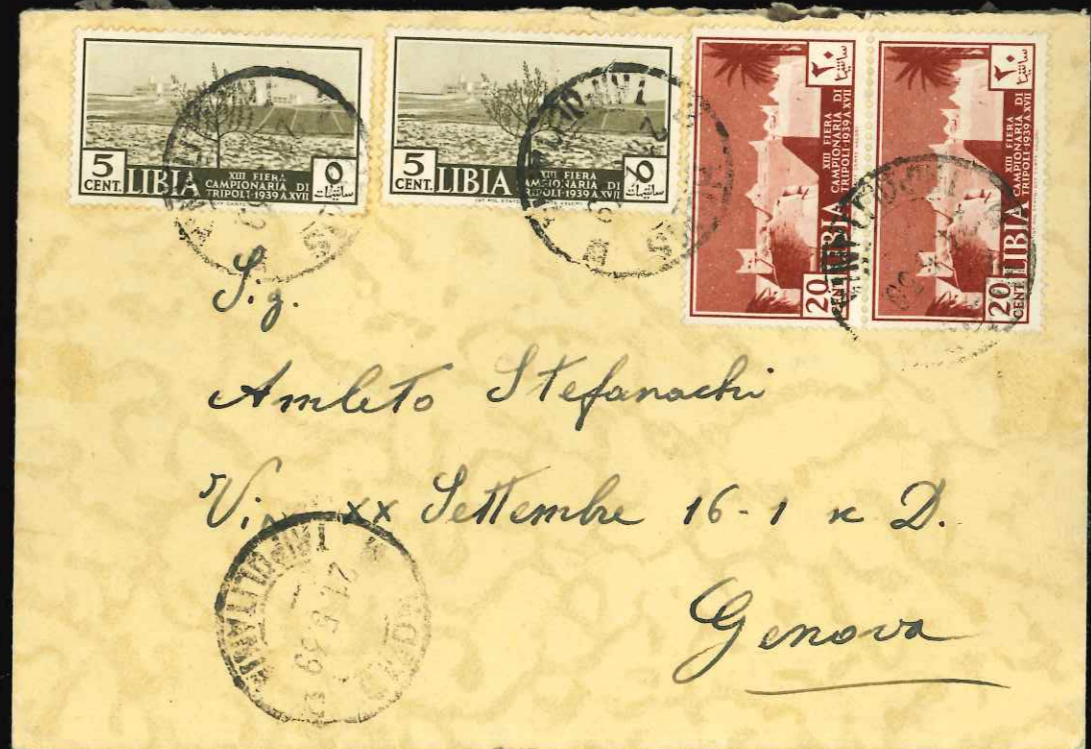 5 CENT. LIBIA XIII FIERA CAMPIONARIA DI TRIPOLI · 1939 A. XVII ٥ سانتيمات
5 CENT. LIBIA XIII FIERA CAMPIONARIA DI TRIPOLI · 1939 A. XVII ٥ سانتيمات
20 CENT. LIBIA XIII FIERA CAMPIONARIA DI TRIPOLI · 1939 A. XVII ٢٠
20 CENT. LIBIA XIII FIERA CAMPIONARIA DI TRIPOLI · 1939 A. XVII ٢٠
Sig.
Amleto Stefanachi
Via xx Settembre 16-1 D.
Genova
TRIPOLITANIA